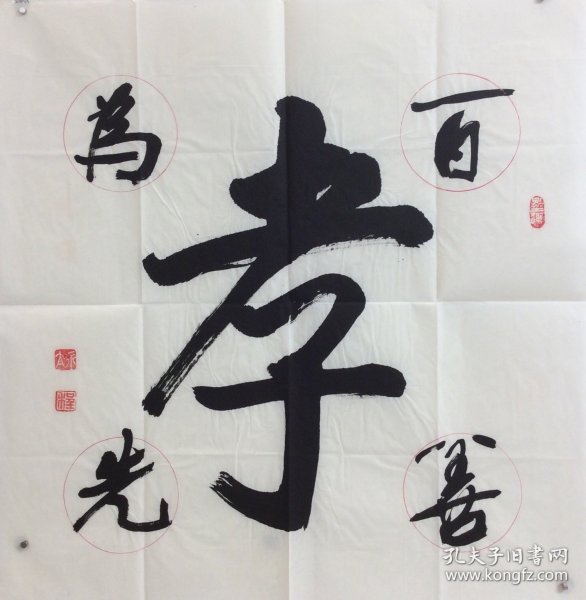 百善
孝
為先
孔夫子旧书网
www.kongfz.com